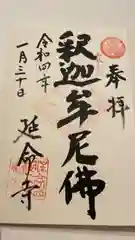 奉拝
釈迦牟尼佛
令和四年
一月三十日
延命寺